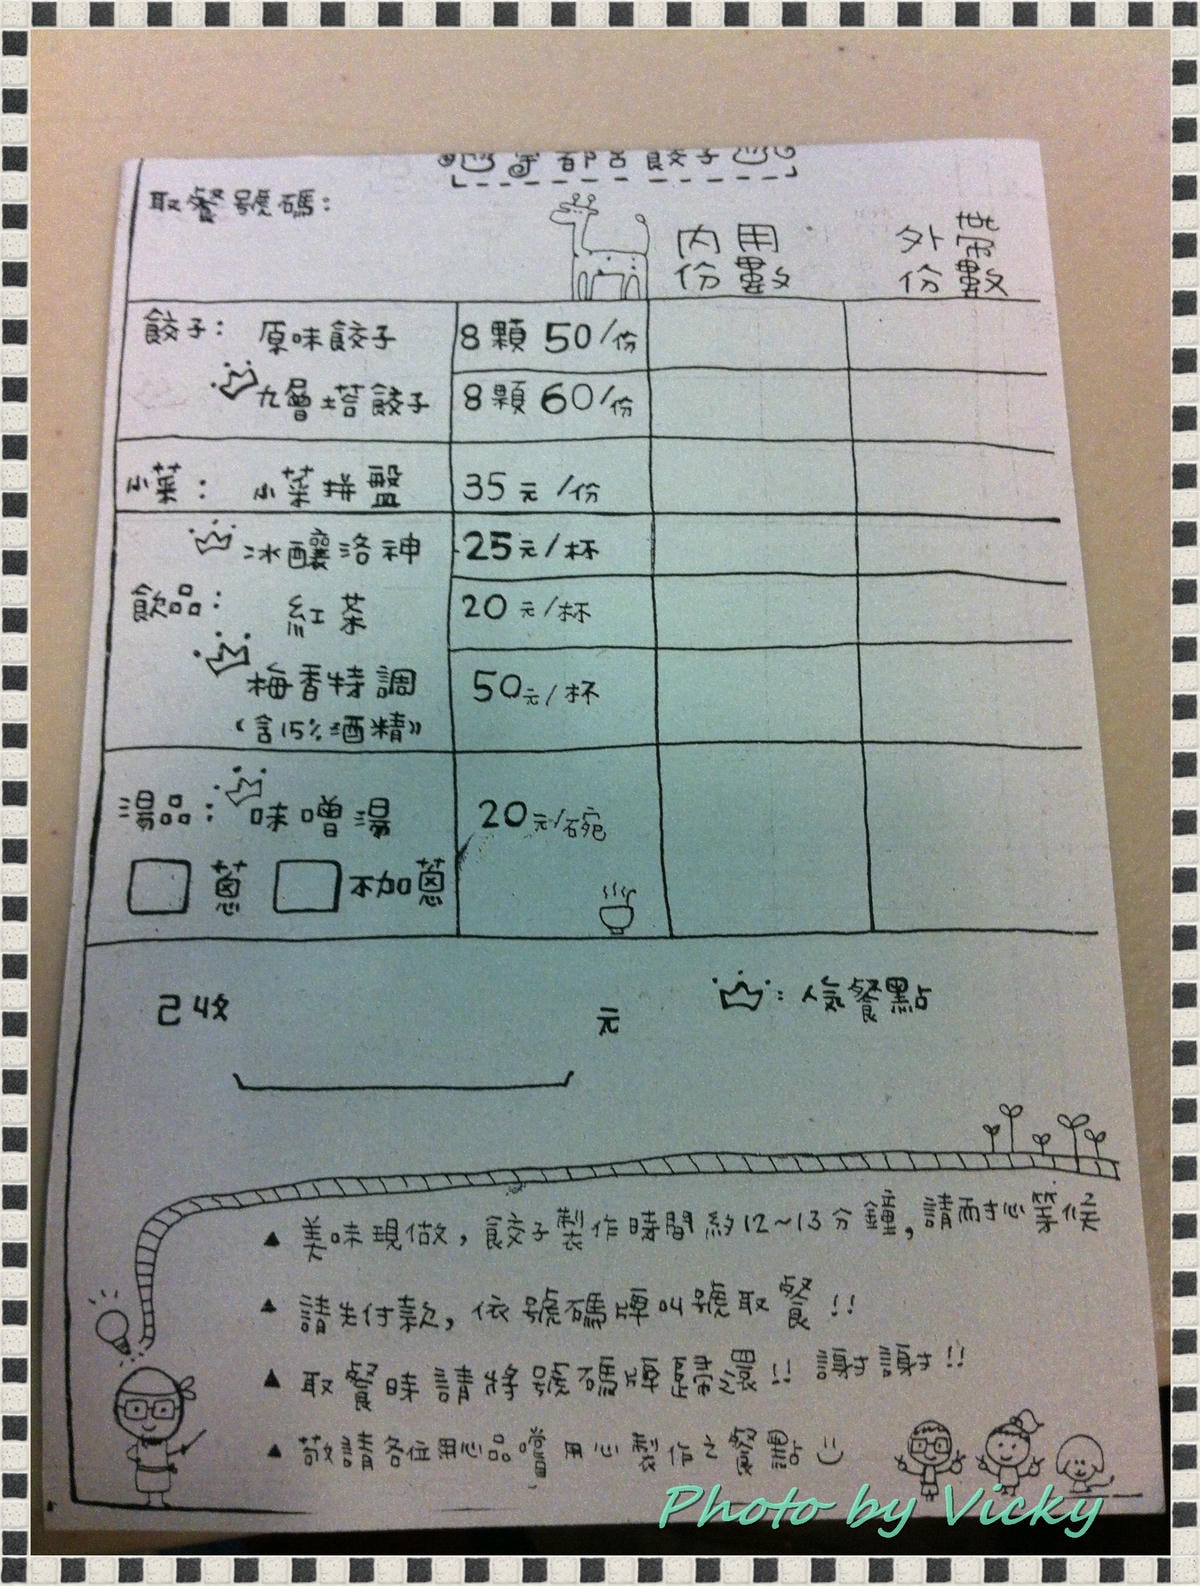 都宮餃子
取餐號碼：
內用份數
外帶份數
餃子： 原味餃子 8顆 50/份
九層塔餃子 8顆 60/份
小菜： 小菜拼盤 35元/份
冰釀洛神 25元/杯
飲品： 紅茶 20元/杯
梅香特調 50元/杯
(含15%酒精)
湯品： 味噌湯 20元/碗
蔥 不加蔥
已收 元
：人氣餐點
▲ 美味現做，餃子製作時間約12~13分鐘，請耐心等候
▲ 請先付款，依號碼牌叫號取餐!!
▲ 取餐時請將號碼牌歸還!! 謝謝!!
▲ 敬請各位用心品嚐用心製作之餐點
Photo by Vicky